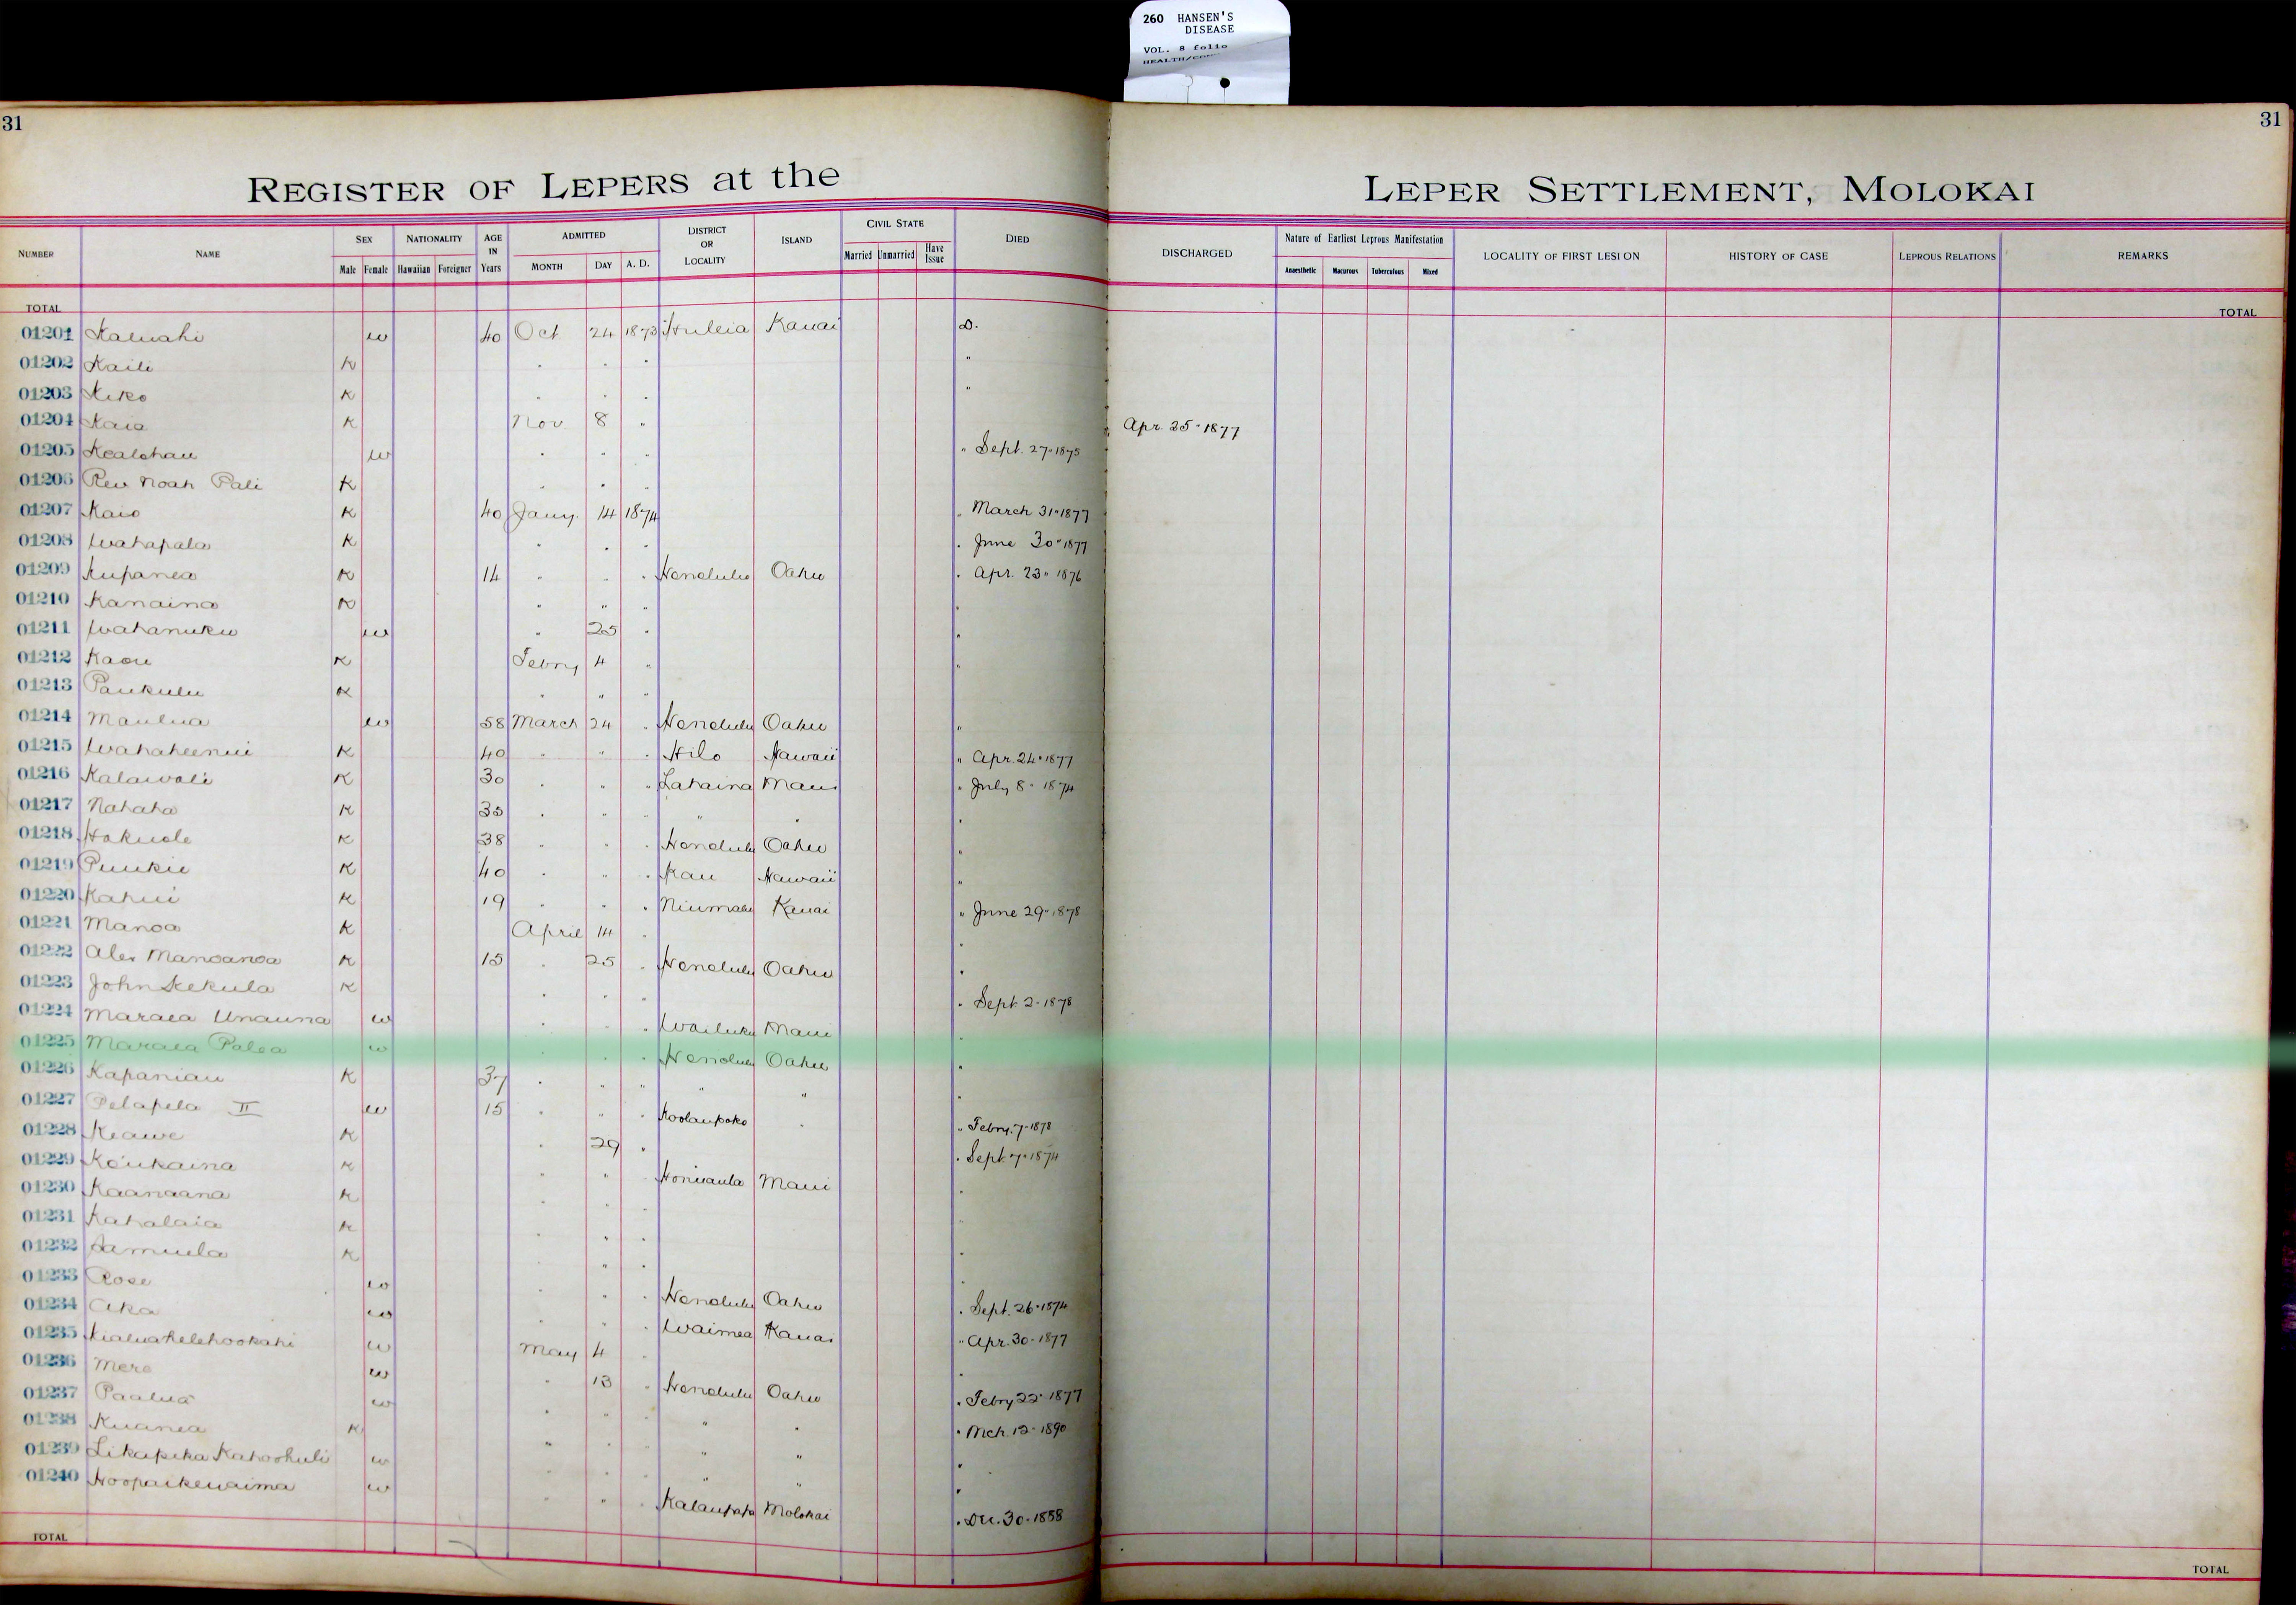 260 HANSEN'S
DISEASE
VOL. 8 folio
31
31
REGISTER OF LEPERS at the
LEPER SETTLEMENT, MOLOKAI
NUMBER NAME SEX Male Female NATIONALITY Hawaiian Foreigner AGE IN Years ADMITTED MONTH DAY A. D. DISTRICT OR LOCALITY ISLAND CIVIL STATE Married Unmarried Have Issue DIED DISCHARGED Nature of Earliest Leprous Manifestation Anaesthetic Macurous Tuberculous Mixed LOCALITY OF FIRST LESION HISTORY OF CASE LEPROUS RELATIONS REMARKS
TOTAL TOTAL
01201 Kaluahi w 40 Oct 24 1873 Huleia Kauai D.
01202 Kaili K " " " "
01203 Kiko K " " " "
01204 Kaia K Nov. 8 " " Apr. 25" 1877
01205 Kealohau w " " " " Sept. 27" 1875
01206 Rev Noah Pali K " " "
01207 Kaio K 40 Jany. 14 1874 " March 31" 1877
01208 Wahapala K " " " " June 30" 1877
01209 Kupanea K 14 " " " Honolulu Oahu " Apr. 23" 1876
01210 Kanaina K " " " "
01211 Wahanuku w " 25 " "
01212 Kaou K Febry 4 " "
01213 Paukulu K " " "
01214 Maulua w 58 March 24 " Honolulu Oahu "
01215 Wahaheenui K 40 " " " Hilo Hawaii " Apr. 24" 1877
01216 Kalawali K 30 " " " Lahaina Maui " July 8" 1874
01217 Nahaha K 35 " " " " " "
01218 Hokuole K 38 " " " Honolulu Oahu "
01219 Puukii K 40 " " " Kau Hawaii "
01220 Kahui K 19 " " " Niumalu Kauai " June 29" 1878
01221 Manoa K April 14 " "
01222 Alex Manoanoa K 15 " 25 " Honolulu Oahu "
01223 John Kekula K " " " " Sept. 2" 1878
01224 Maraea Unauna w " " " Wailuku Maui "
01225 Maraea Palea w " " " Honolulu Oahu "
01226 Kapaniau K 37 " " " " " "
01227 Pelapela II w 15 " " " Koolaupoko " " Febry. 7" 1878
01228 Keawe K " 29 " " Sept. 7" 1874
01229 Koukaina K " " " Honuaula Maui "
01230 Kaanaana K " " " "
01231 Kahalaia K " " "
01232 Samuela K " " "
01233 Rose w " " " Honolulu Oahu " Sept. 26" 1874
01234 Aka w " " " Waimea Kauai " Apr. 30" 1877
01235 Kialuahelehookahi w May 4 " "
01236 Mere w " 13 " Honolulu Oahu " Febry 22" 1877
01237 Paalua w " " " " " " Mch. 12" 1890
01238 Kuanea K " " " " " "
01239 Likapeka Kahoohuli w " " " " " "
01240 Hoopaikewaima w " " " Kalaupapa Molokai " Dec. 30" 1888
TOTAL TOTAL